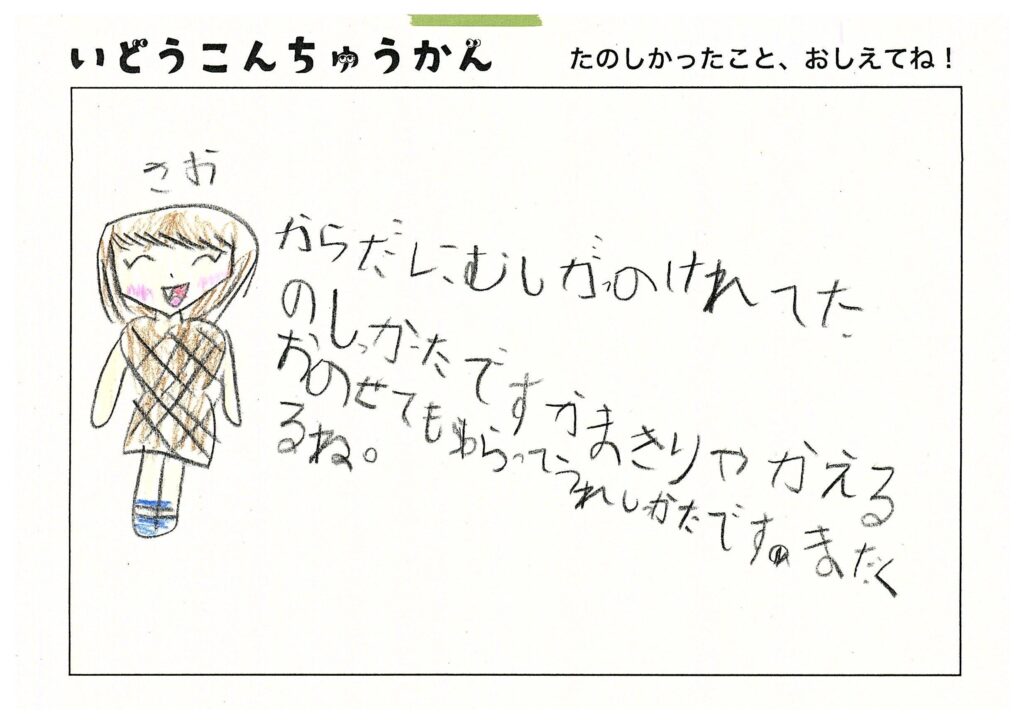 いどうこんちゅうかん
たのしかったこと、おしえてね！
さお
からだにむしがのけれてた
のしっかたですかまきりやかえる
おのせてもわらってうれしかたです。またく
るね。